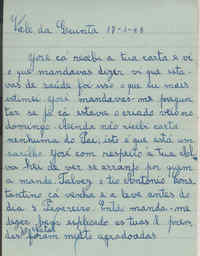 Vale da Quinta 17-1-48
José cá recibi a tua carta e vi
o que mandavas dizer vi que esta-
vas de saúde foi isso o que eu mais
estimei José mandavas-me pregun-
tar se já cá estava o criado veio no
domingo. Ainda não recibi carta
nenhuma do Pai, isto é que está um
sarilho José com respeito á tua
hei de ver se arranjo por quem
a mande. Talvez o tio António Cons-
tantino cá venha e a leve antes do
dia 3 Fevereiro. Então manda-me
dizer
foram muito